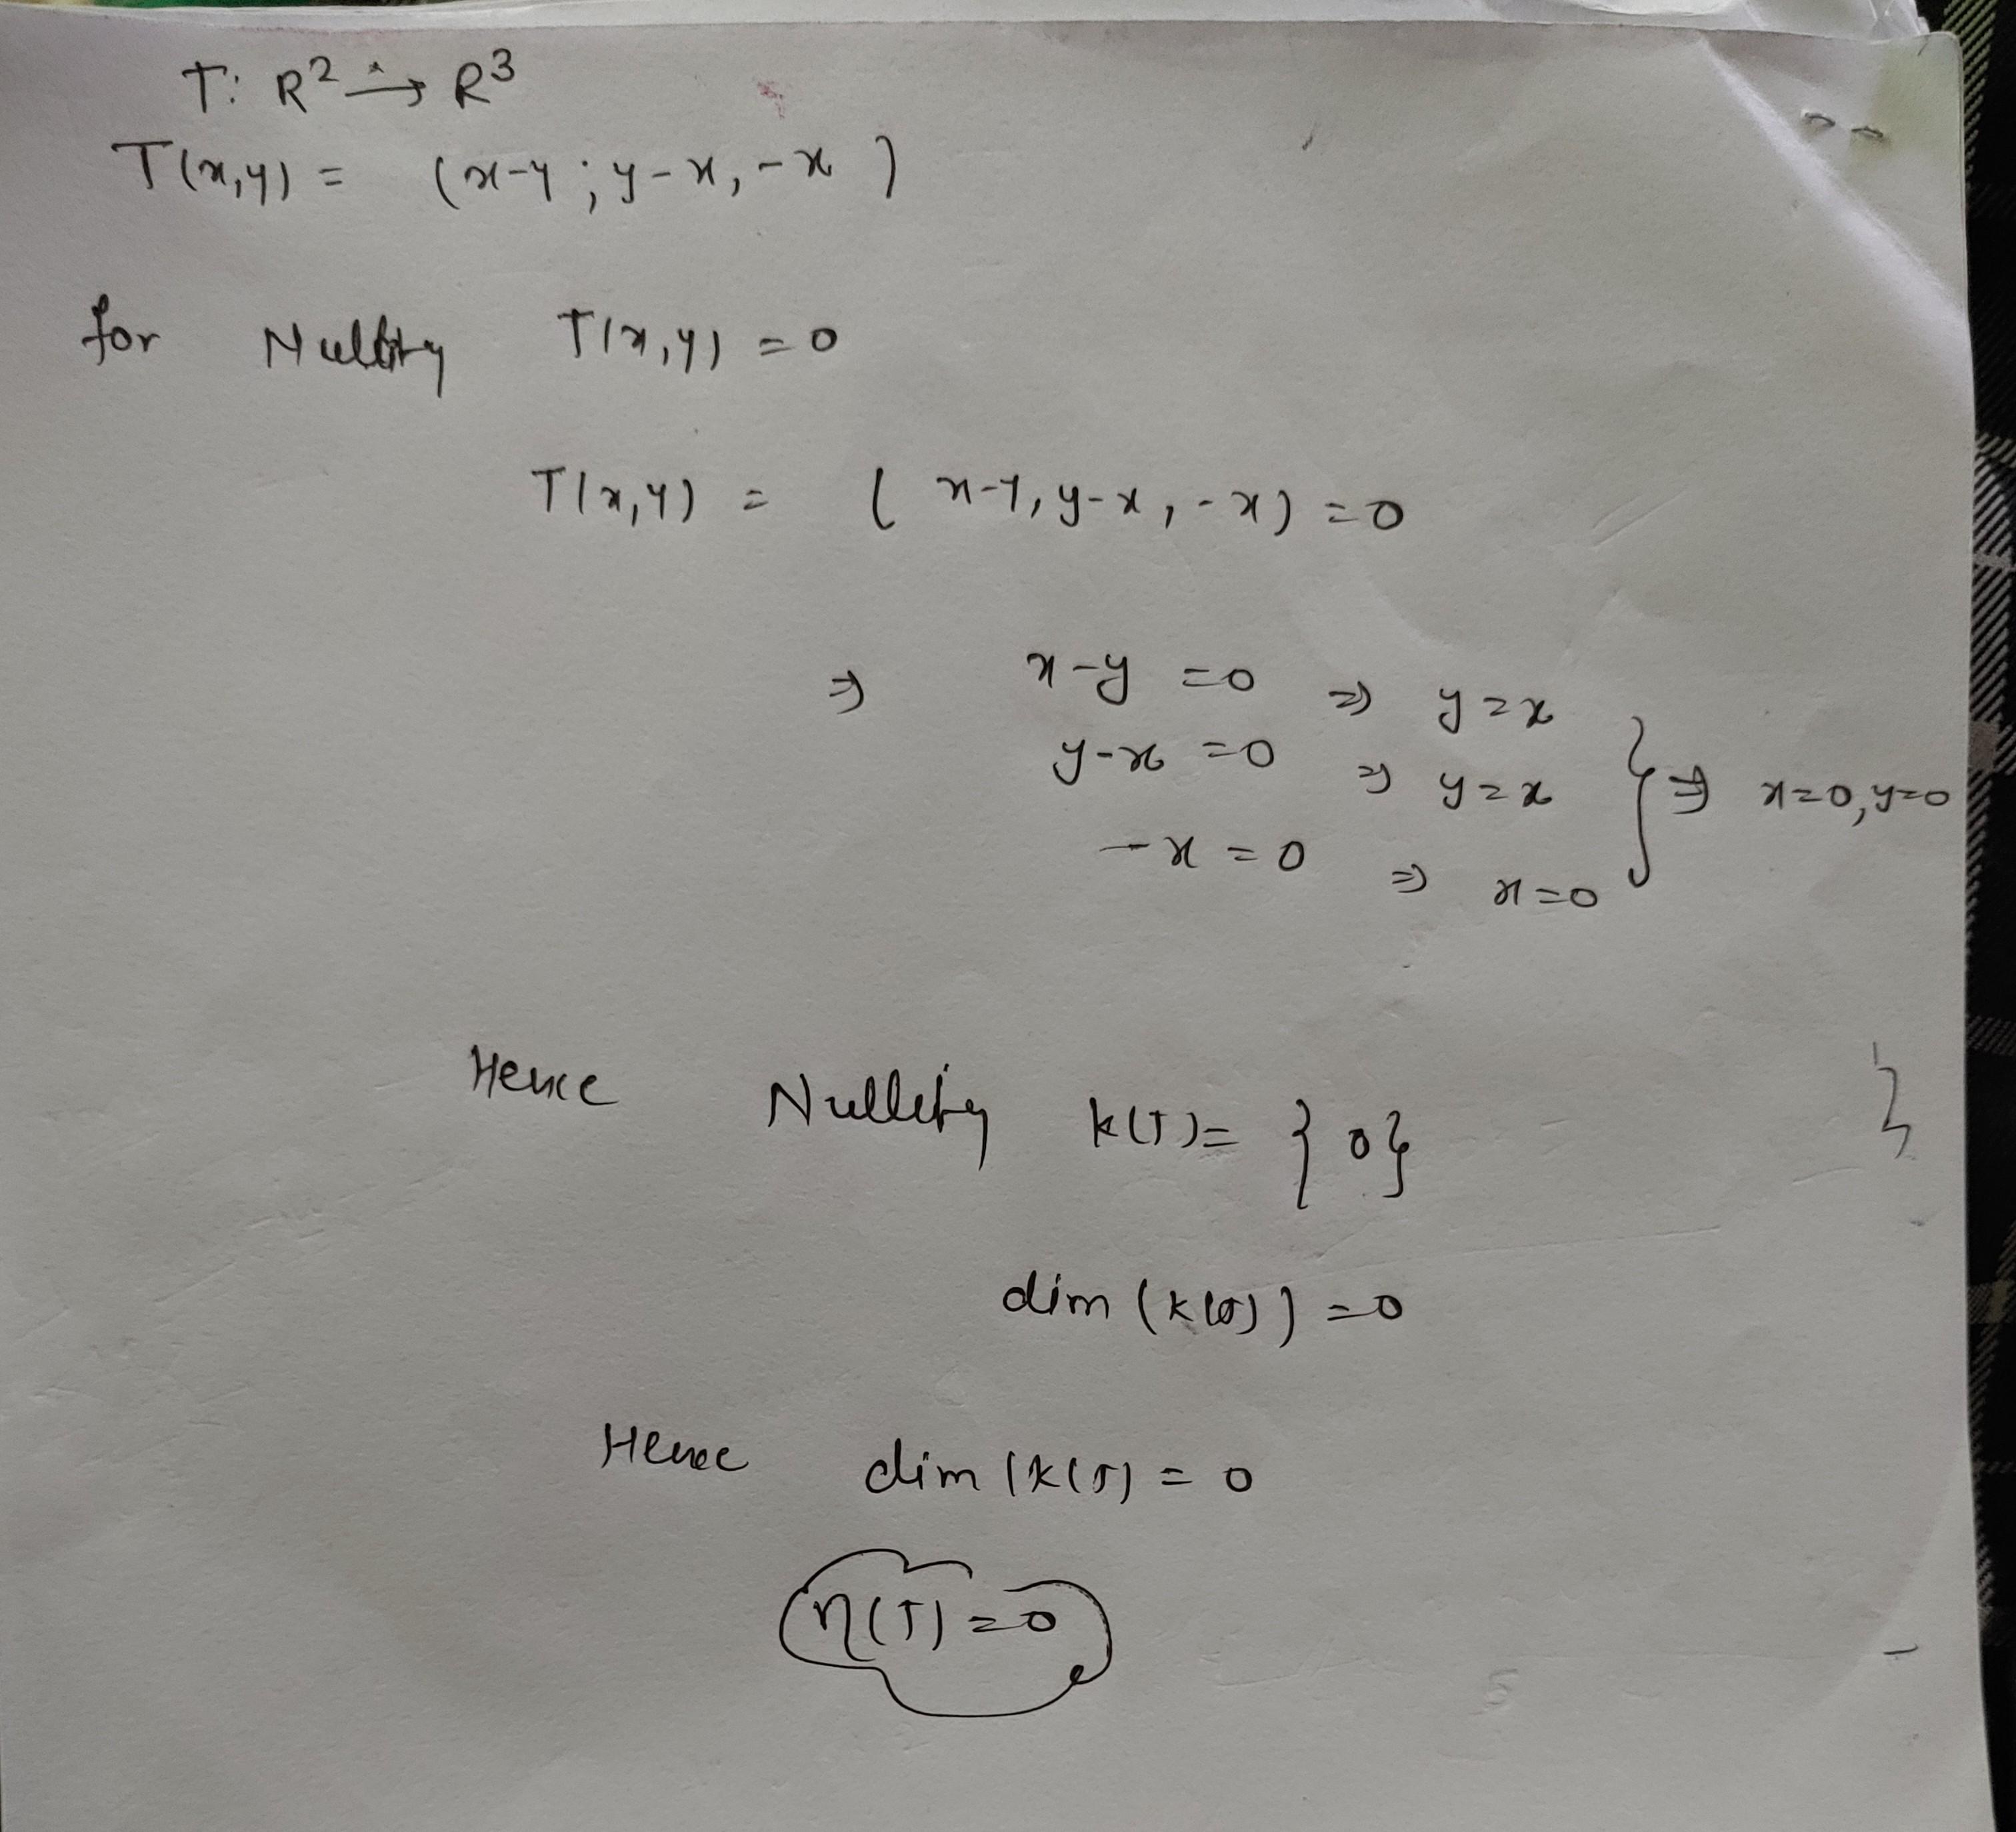 T: R² → R³
T(x,y) = (x-y ; y-x, -x)
for Nullity T(x,y) = 0
T(x,y) = (x-y, y-x, -x) = 0
⇒ x-y = 0 ⇒ y=x
y-x = 0 ⇒ y=x } ⇒ x=0, y=0
-x = 0 ⇒ x=0
Hence Nullity k(T) = {0}
dim (k(T)) = 0
Hence dim (k(T) = 0
η(T) = 0